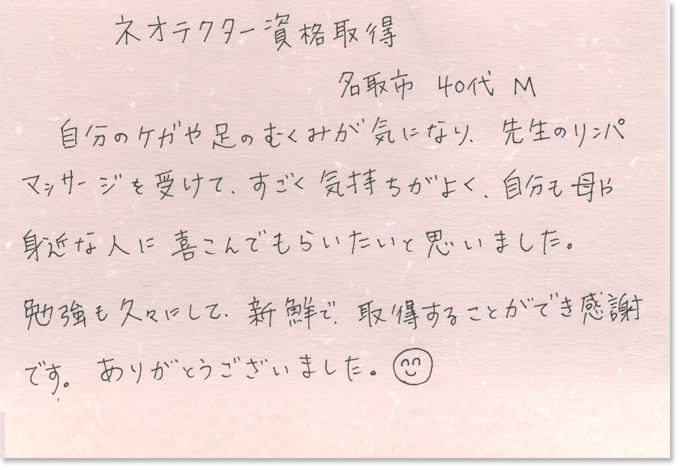 ネオテクター資格取得
名取市 40代 M
自分のケガや足のむくみが気になり、先生のリンパ
マッサージを受けて、すごく気持ちがよく、自分も母や
身近な人に喜こんでもらいたいと思いました。
勉強も久々にして、新鮮で、取得することができ感謝
です。ありがとうございました。